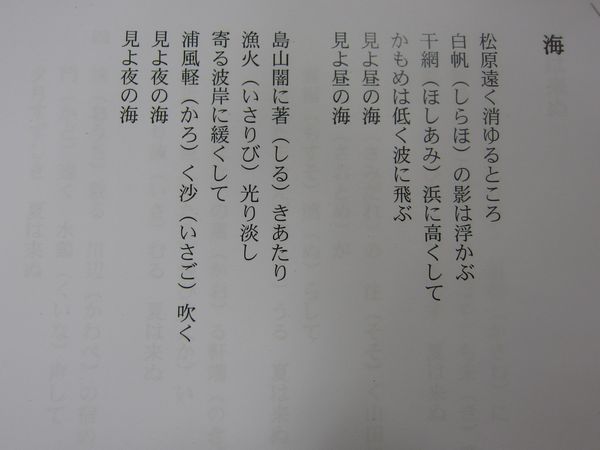 海
松原遠く消ゆるところ
白帆（しらほ）の影は浮かぶ
干網（ほしあみ）浜に高くして
かもめは低く波に飛ぶ
見よ昼の海
見よ昼の海
島山闇に著（しる）きあたり
漁火（いさりび）光り淡し
寄る波岸に緩くして
浦風軽（かろ）く沙（いさご）吹く
見よ夜の海
見よ夜の海